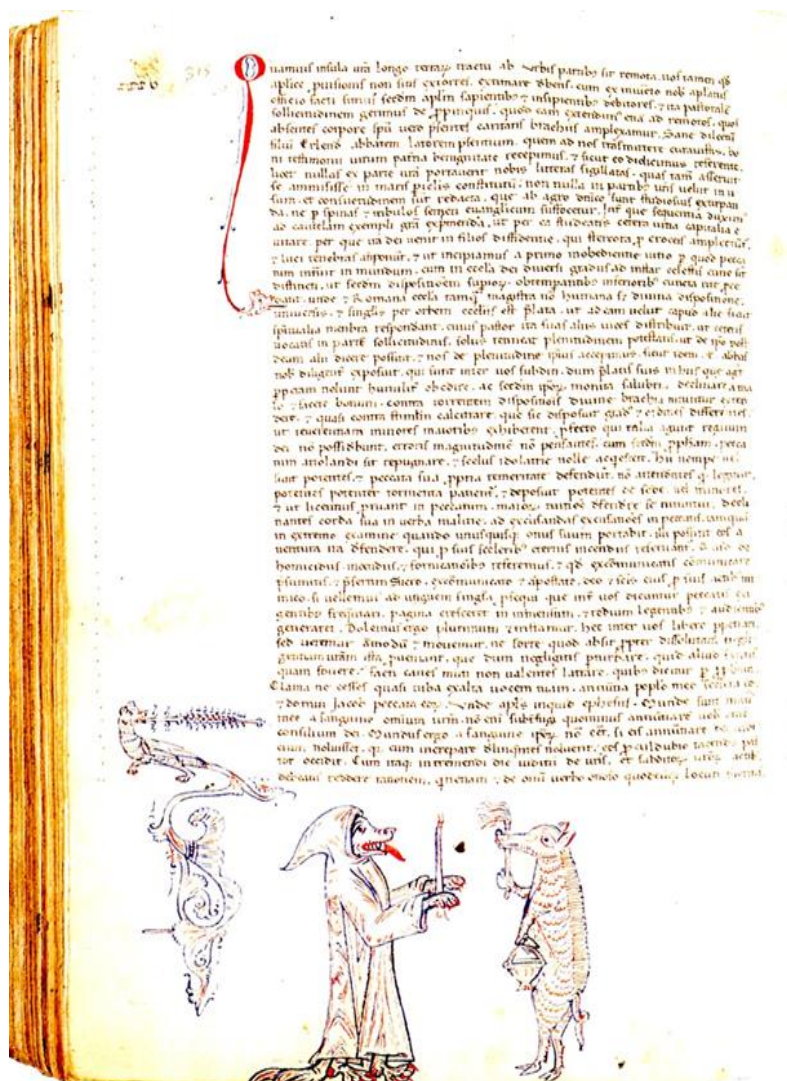 315
Quamuis insula ura longo terrarꝫ tractu ab Vrbis partibꝫ sit remota, uos tamen
aplice prouisionis non sitis extorres, extimare debens, cum ex iniuncto nob aplatus
officio facti simus scdm aplm sapientibꝫ ⁊ insipientibꝫ debitores, ⁊ ita pastorale
sollicitudinem gerimus de ꝓpinquis, quod eam extendimus etiā ad remotos, quos
absentes corpore spū uero p̄sentes caritatis brachiis amplexamur. Sane dilectū
filiū Erlend abbatem latorem p̄sentium, quem ad nos transmittere curauistis, bo
ni testimonii uirum paterna benignitate recepimus, ⁊ sicut eo didicimus referente,
licet nullas ex parte ura portauerit nobis litteras sigillatas, quas tam̄ asseruit
se amisisse in maris p̄celis constitutū, non nulla in partibꝫ uris uelut in u
sum et consuetudinem sūt redacta, que ab agro dn̄ico sunt studiosius extirpan
da, ne p̄ spinas ⁊ tribulos semen euangelicum suffocetur. Int que sequentia duximꝰ
ad cautelam exempli grā exprimenda, ut per ea studeatis cetera uitia capitalia e
uitare, per que ira dei uenit in filios diffidentie, qui stercora p croceis amplectunt̄,
⁊ luci tenebras ⁊ ut incipiamus a primo inobedientie uitio p quod pecca
tum intrauit in mundum, cum in ecclā dei diuersi gradus ad instar celestis curie sit
distincti, ut scdm dispositionem superiorꝫ obtemperantibꝫ inferioribꝫ cuncta
unde ⁊ Romana eccla tamqꝫ magistra nō humana sꝫ diuina dispositione,
uniuersis ⁊ singlis per orbem ecclīis est p̄lata, ut ad eam uelut capud alie sicut
spiritualia menbra respondeant, cuius pastor ita suas aliis uices distribuit, ut ceteris
uocatis in partē sollicitudinis, solus retineat plenitudinem potestatis, ut de ipo post
deum alii dicere possint, ⁊ nos de plenitudine ipius accepimus, sicut idem abbas
nob diligenter exposuit, qui sunt inter uos subditi, dum p̄latis suis in hiis que
nolunt humilit̄ obedire, ac scdm ipoꝫ monita salubri, declinare a ma
lo ⁊ facere bonum, contra torrentem dispositionis diuine brachia nituntur exten
dere, ⁊ quasi contra stimlm calcitrare, que sic disposuit grad⁹ ⁊ ordines differentes,
ut reuerentiam minores maioribꝫ exhiberent, p̄fecto qui talia agunt regnum
dei nō possidebunt, erroris magnitudinē nō pensantes, cum scdm ꝓphām, pecca
tum ariolandi sit repugnare, ⁊ scelus idolatrie nolle acqescere. Hii nempe
potentes, ⁊ peccata sua ꝓpria temeritate defendūt, nō attendētes q legitur,
potentes potenter tormenta patient̄, ⁊ deposuit potentes de sede, uel minores,
⁊ ut licentius ruant in peccatum, maiorꝫ tuitiōe defendere se nituntur, decli
nantes corda sua in uerba malitie, ad excusandas excusatōes in peccatis, tamquā
in extremo examine quando unusquisqꝫ onus suum portabit, illi possint eos a
uentura ira defendere, qui p suis sceleribꝫ eternis incendiis reseruant̄.
homicidiis, incendiis, ⁊ fornicatiōibꝫ referemus, ⁊ qd excōmunicatis communicare
p̄sumitis, ⁊ p̄sertim Suero, excōmunicato ⁊ apostate, deo ⁊ scīs eius p suis
mico, si uellemus ad unguem singla p̄sequi que int uos dicuntur peccatis
gentibꝫ frequentari, pagina cresceret in inmensum, ⁊ tedium legentibꝫ ⁊ audientibꝫ
generaret. Dolemus ergo plurimum ⁊ tristamur, hec inter uos libere
sed ueremur ammodū ⁊ mouemur, ne forte quod absit ꝓpter dissolutam negli
gentiam uram ista pueniant, que dum negligitis pturbare, quid aliud
quam fouere, facti canes muti non ualentes latrare, quibꝫ dicitur p
Clama ne cesses quasi tuba exalta uocem tuam, annūtia poplo meo scelera
⁊ domui Jacob peccata eorꝫ. Vnde aplus inquid ephesiis, Munde sunt man
mee a sanguine omnium ur̄m, nō eni subterfugi quominus annūtiarē uob
consilium dei. Mundus ergo a sanguine ipoꝫ nō eēt, si eis annūtiare
noluisset, qr cum increpare delinqūtes nolunt, eos p culdubio tacendo pas
tor occidit. Cum itaqꝫ in tremendi die iudicii de uris, et subditorꝫ
debeatis reddere rationem, ⁊ de omī uerbo otioso quodcunqꝫ locuti fueritis